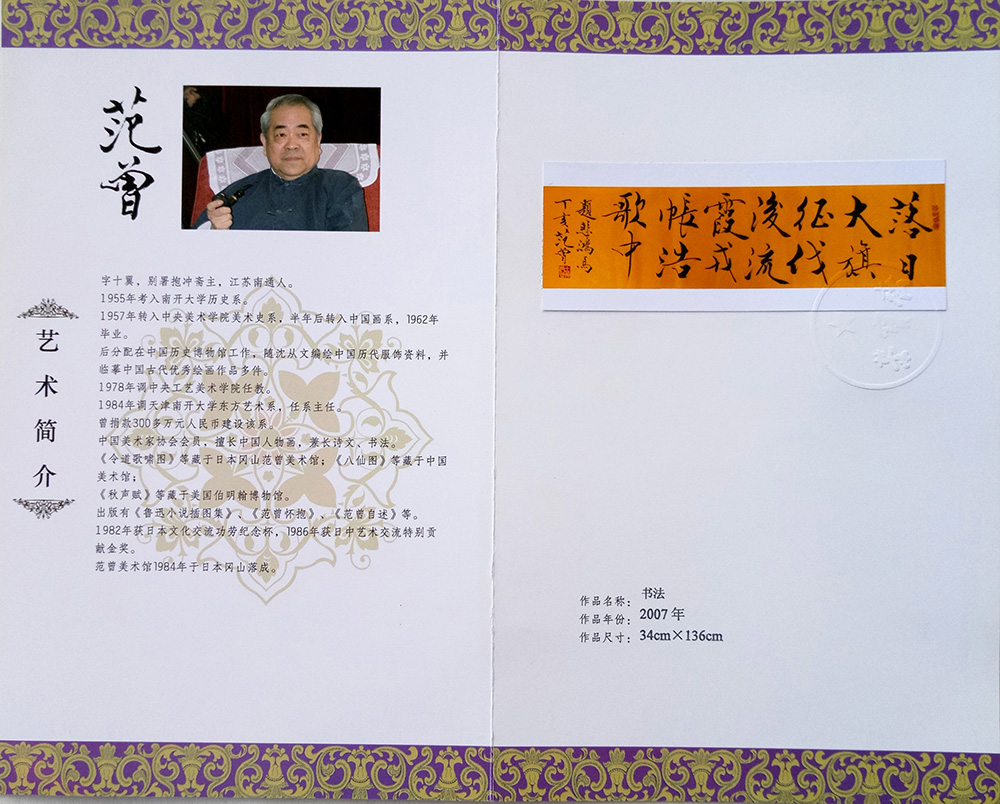 范曾
艺术简介
字十翼，别署抱冲斋主，江苏南通人。
1955年考入南开大学历史系。
1957年转入中央美术学院美术史系，半年后转入中国画系，1962年
毕业。
后分配在中国历史博物馆工作，随沈从文编绘中国历代服饰资料，并
临摹中国古代优秀绘画作品多件。
1978年调中央工艺美术学院任教。
1984年调天津南开大学东方艺术系，任系主任。
曾捐款300多万元人民币建设该系。
中国美术家协会会员，擅长中国人物画，兼长诗文、书法。
《令道歌啸图》等藏于日本冈山范曾美术馆；《八仙图》等藏于中国
美术馆；
《秋声赋》等藏于美国伯明翰博物馆。
出版有《鲁迅小说插图集》、《范曾怀抱》、《范曾自述》等。
1982年获日本文化交流功劳纪念杯，1986年获日中艺术交流特别贡
献金奖。
范曾美术馆1984年于日本冈山落成。
落日
大旗
征伐
後流
霞戎
帳浩
歌中
題悲鴻馬
丁亥范曾
作品名称：书法
作品年份：2007 年
作品尺寸：34cm×136cm